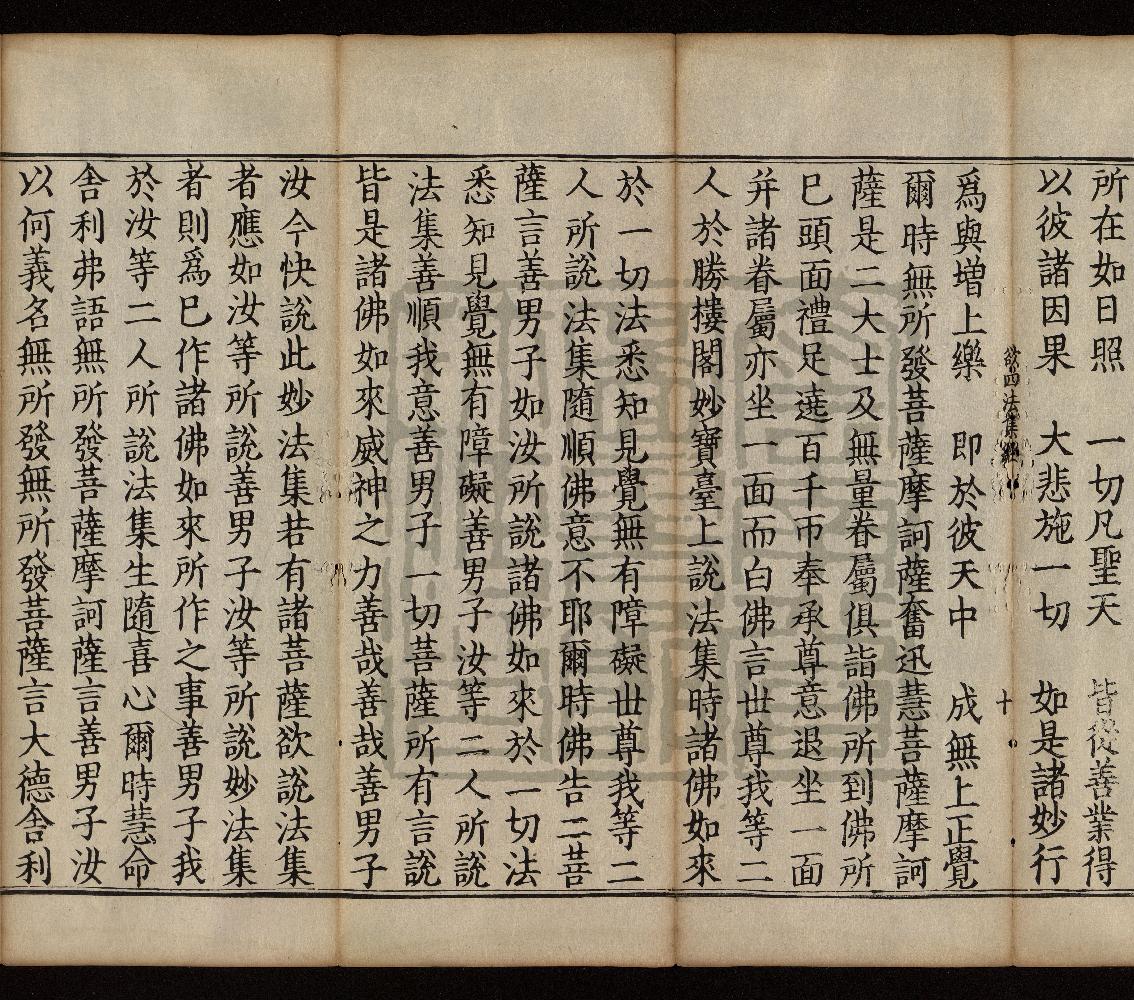 所在如日照　一切凡聖天　皆從善業得
以彼諸因果　大悲施一切　如是諸妙行
欲四法集經　十
爲與增上樂　即於彼天中　成無上正覺
爾時無所發菩薩摩訶薩奮迅慧菩薩摩訶
薩是二大士及無量眷屬俱詣佛所到佛所
巳頭面禮足遶百千帀奉承尊意退坐一面
并諸眷屬亦坐一面而白佛言世尊我等二
人於勝樓閣妙寶臺上說法集時諸佛如來
於一切法悉知見覺無有障礙世尊我等二
人所說法集隨順佛意不耶爾時佛告二菩
薩言善男子如汝所說諸佛如來於一切法
悉知見覺無有障礙善男子汝等二人所說
法集善順我意善男子一切菩薩所有言說
皆是諸佛如來威神之力善哉善哉善男子
汝今快說此妙法集若有諸菩薩欲說法集
者應如汝等所說善男子汝等所說妙法集
者則爲巳作諸佛如來所作之事善男子我
於汝等二人所說法集生隨喜心爾時慧命
舍利弗語無所發菩薩摩訶薩言善男子汝
以何義名無所發無所發菩薩言大德舍利